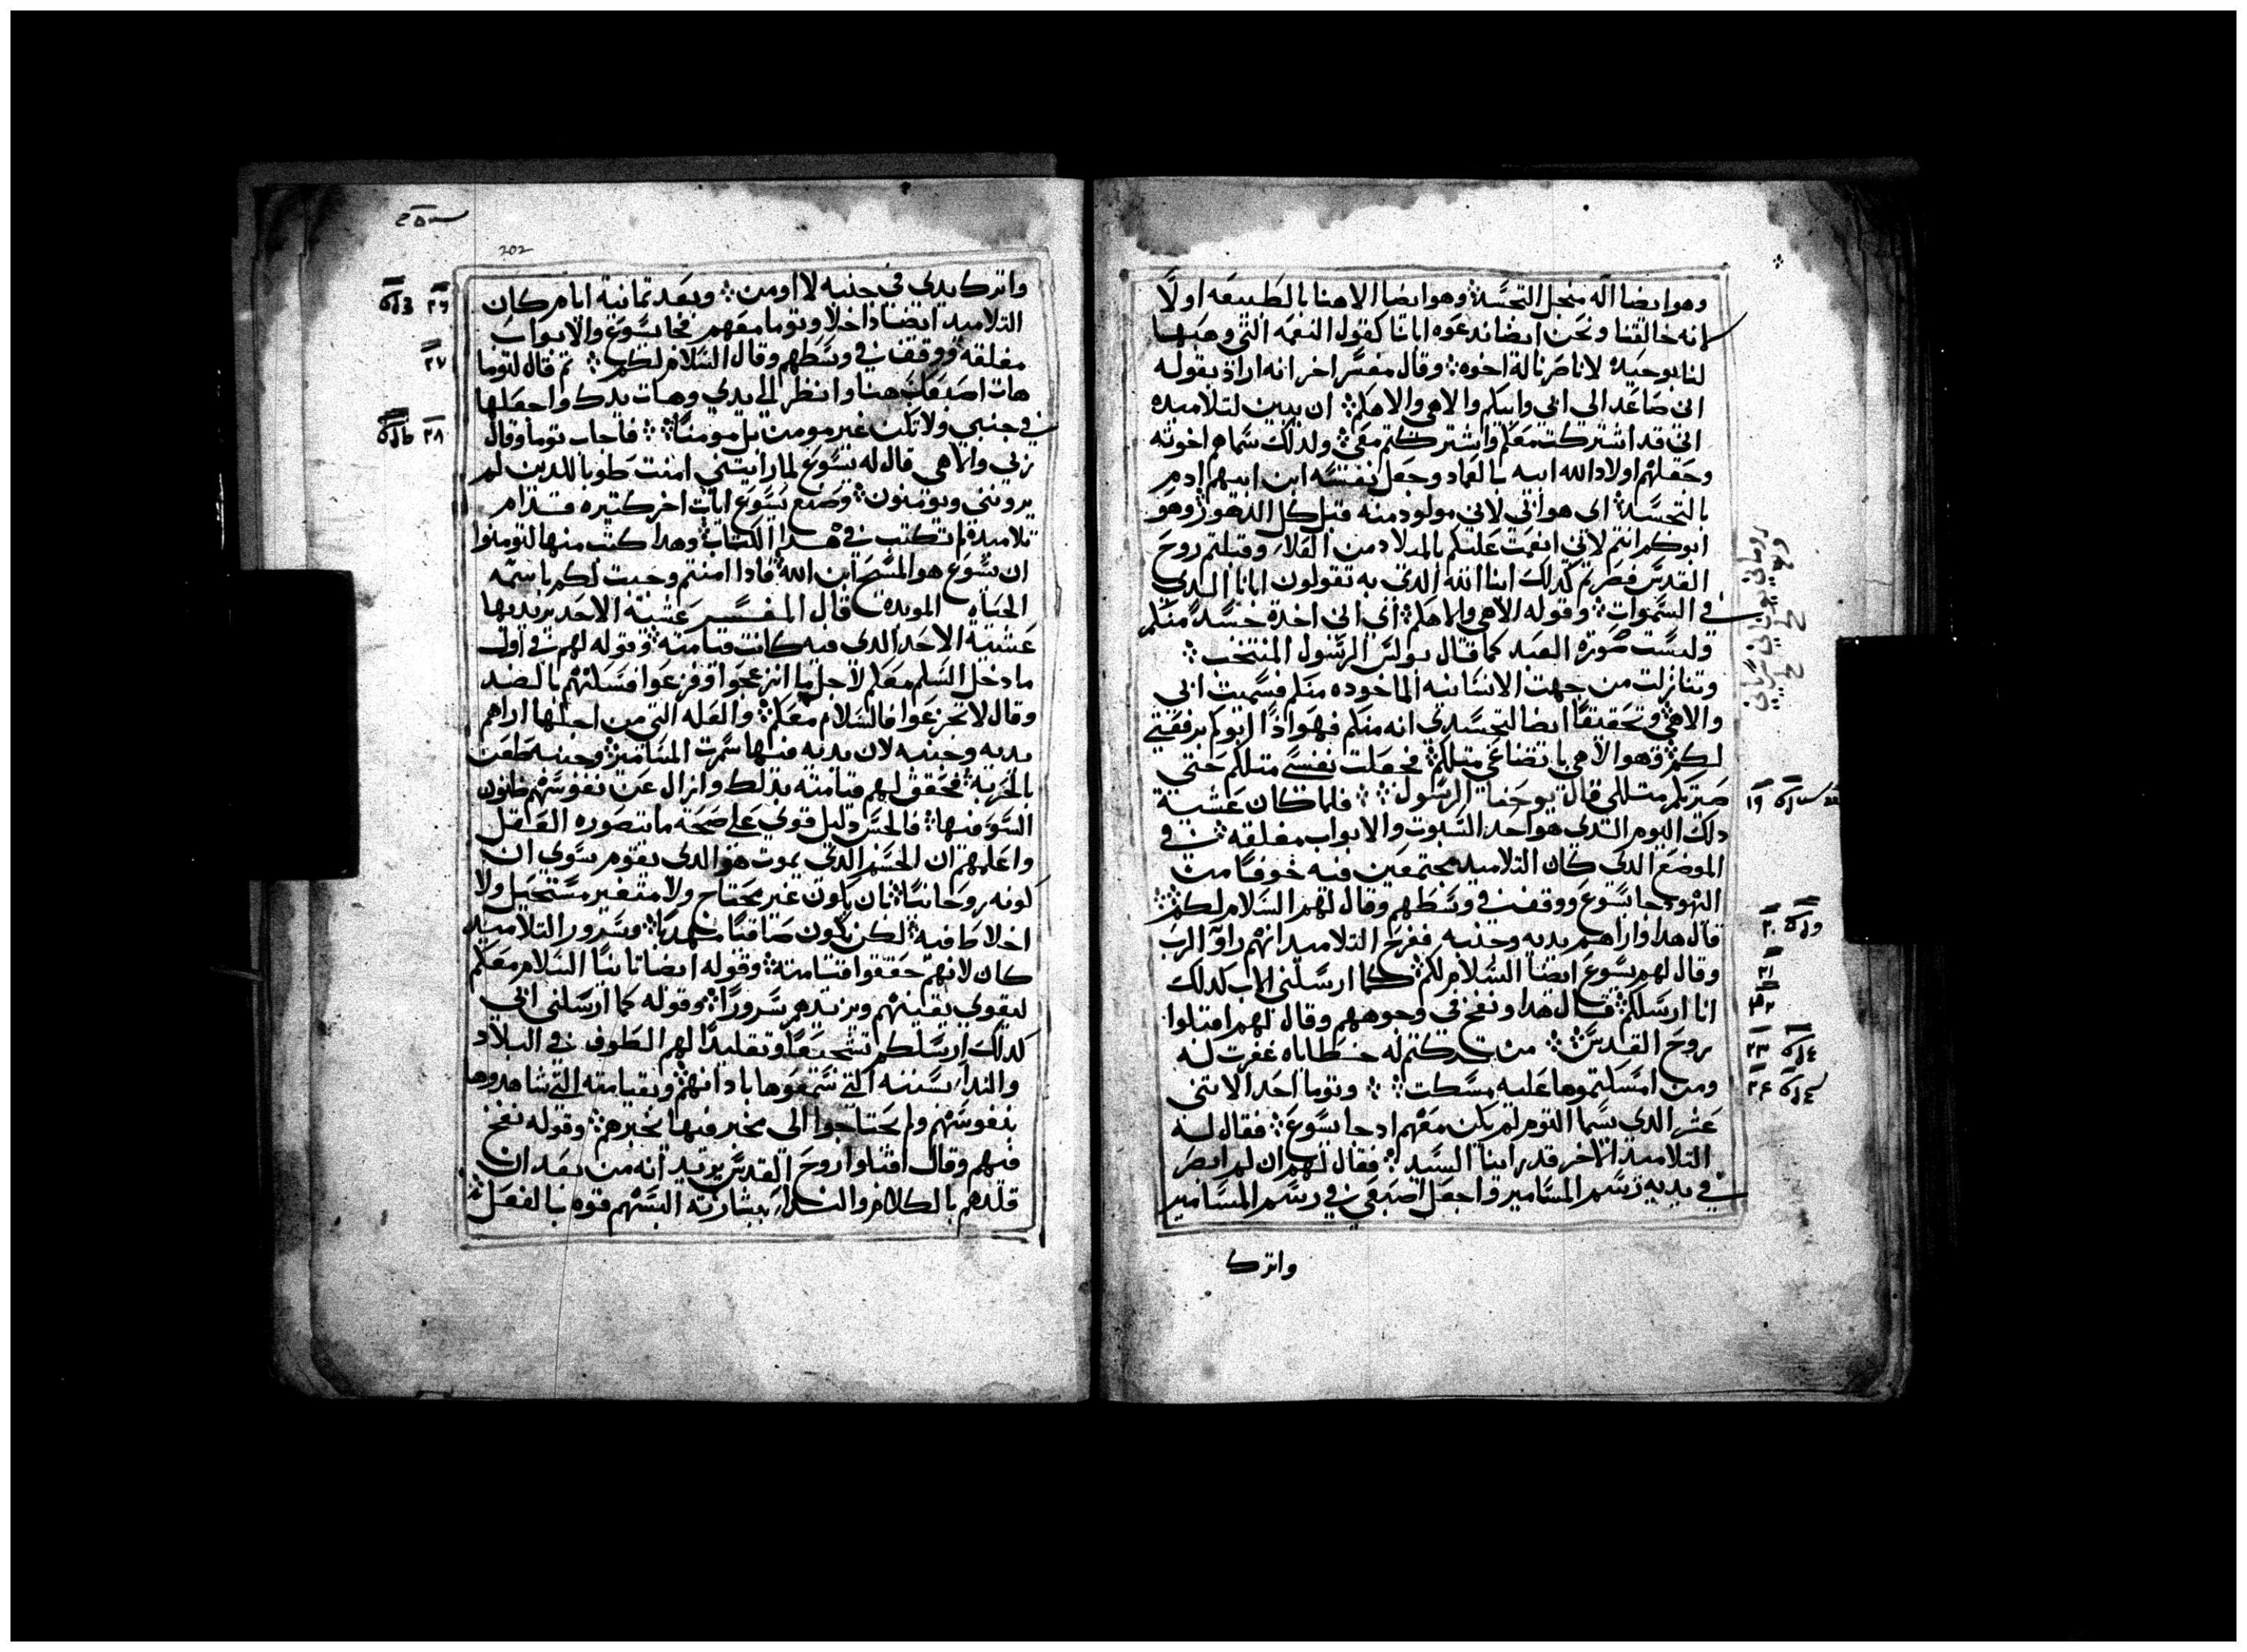 وهو ايضا اله منجل التجسد وهو ايضا الاهنا بالطبيعه اولًا
لانه خالقنا ونحن ايضا ندعوه ابانا كقول النعمه التي وهبها
لنا بوحيده لانا صرنا له اخوه وقال مفسر اخر انه اراد بقوله
اني صاعد الى ابي وابيكم والاهي والاهكم ان يبين لتلاميده
اني قد اشتركت معكم واشتركتم معي ولدلك سماهم اخوته
وجعلهم اولاد الله ابيه بالعماد وجعل نفسه ابن ابيهم ادم
بالتجسد اى هو ابي لاني مولود منه قبل كل الدهور وهو
ابوكم انتم لاني انعمت عليكم بالميلاد من العلا وقبلتم روح
القدس فصرتم كدلك ابنا الله الدي به تقولون ابانا الدي
في السموات وقوله الاهي والاهكم اني اخدت جسدًا منكم
وليست صورة العبد كما قال بولس الرسول المنتخب
وتنازلت من جهت الانسانيه الماخوده منكم فسميت ابي
والاهي وتحقيقًا ايضا لتجسدي انه منكم فهو ادًا ابوكم برفقتي
لكم وهو الاهي باتضاعي متلكم فجعلت نفسي متلكم حتى
صيرتكم متللي قال يوحنا الرسول فلما كان عشية
دلك اليوم الدي هو احد السبوت والابواب مغلقه في
الموضع الدي كان التلاميد مجتمعين فيه خوفًا من
اليهود جا يسوع ووقف في وسطهم وقال لهم السلام لكم
قال هدا واراهم يديه وجنبه ففرح التلاميد انهم راوا الرب
وقال لهم يسوع ايضًا السلام لكم كما ارسلني الاب كدلك
انا ارسلكم قال هدا ونفخ في وجوههم وقال لهم اقبلوا
روح القدس من تركتم له خطاياه غفرت له
ومن امسكتموها عليه مسكت وتوما احد الاتنى
عشر الدي يسما التوم لم يكن معهم اد جا يسوع فقال له
التلاميد الاخر قد راينا السيد فقال لهم ان لم ابصر
في يديه رسم المسامير واجعل اصبعي في رسم المسامير
واترك
١٩
٢٠
٢١
٢٢
٢٣
٢٤
202
واترك يدي في جنبه لا اومن وبعد تمانية ايام كان
التلاميد ايضا داخلًا وتوما معهم فجا يسوع والابواب
مغلقه ووقف في وسطهم وقال السلام لكم تم قال لتوما
هات اصبعك هنا وانظر الى يدي وهات يدك واجعلها
في جنبي ولا تكن غير مومن بل مومنًا فاجاب توما وقال
ربي والاهي قال له يسوع لما رايتني امنت طوبا للدين لم
يروني ويومنون وصنع يسوع ايات اخر كتيره قدام
تلاميده لم تكتب في هدا الكتاب وهدا كتب منها لتومنوا
ان يسوع هو المسيح ابن الله فادا امنتم وجبت لكم باسمه
الحياه الموبده قال المفسر عشية الاحد يريد بها
عشية الاحد الدي فيه كانت قيامته وقوله لهم في اول
ما دخل السلم معكم لاجل ما انزعجوا وفزعوا فسلاهم بالضد
وقال لا تجزعوا فالسلام معكم والعله التي من اجلها اراهم
يديه وجنبه لان يديه فيها سمرت المسامير وجنبه طعن
بالحربه فحقق لهم قيامته بدلك وازال عن نفوسهم ظنون
السوء فيها فالحس دليل قوي على صحة ما يتصوره العاقل
واعلمهم ان الجسم الدي يموت هو الدي يقوم سوى ان
كونه روحانيًا بان يكون غير محتاج ولا متغير مستحيل ولا
اخلاط فيه لكن يكون صافيًا مهديًا وسرور التلاميد
كان لانهم حققوا قيامته وقوله ايضا تانيًا السلام معكم
ليقوي يقينهم ويزيدهم سرورًا وقوله كما ارسلني ابي
كدلك ارسلكم تشجيعًا وتقليدًا لهم الطوف في البلاد
والندا بسننه التي سمعوها بادانهم وبقيامته التي شاهدوها
بنفوسهم ولم يحتاجوا الى مخبر فيها يخبرهم وقوله نفخ
فيهم وقال اقبلوا روح القدس يريد انه من بعد ان
قلدهم بالكلام والندا ببشارته البسهم قوه بالفعل
٢٦
٢٧
٢٨